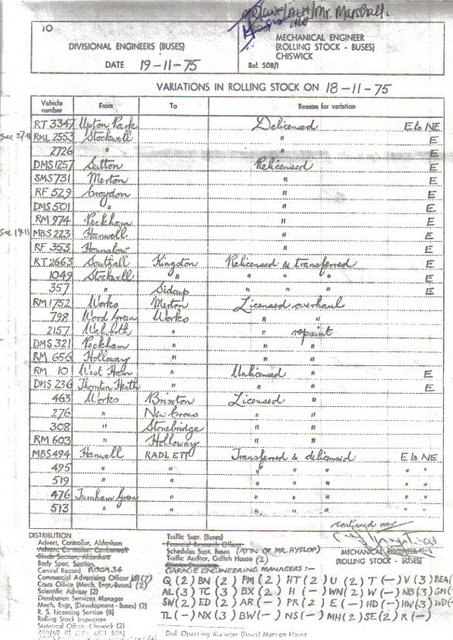 /ALH/Mr. Marshall.
TO
DIVISIONAL ENGINEERS (BUSES)
DATE 19-11-75
MECHANICAL ENGINEER
(ROLLING STOCK - BUSES)
CHISWICK
Ref. 508/1
VARIATIONS IN ROLLING STOCK ON 18-11-75
Vehicle number From To Reason for variation
RT 3347 Upton Park Delicensed E to NE
RML 2553 Stockwell " E
2726 " " E
DMS 1257 Sutton Relicensed E
SMS 731 Merton " E
RF 529 Croydon " E
DMS 501 " " E
RM 974 Peckham " E
see 19-11 MBS 223 Hanwell " E
RF 353 Hounslow " E
RT 2663 Southall Kingston Relicensed & transferred E
1049 Stockwell " " " " E
357 " Sidcup " " " E
RM 1752 Works Merton Licensed overhaul
798 Wood Green Works " "
2157 Walworth " " repaint
DMS 321 Peckham " " "
RM 656 Holloway " " "
RM 10 West Ham " Unlicensed " E
DMS 236 Thornton Heath " " " E
463 Works Brixton Licensed "
276 " New Cross " "
308 " Stonebridge " "
RM 603 " Holloway " "
MBS 494 Hanwell RADLETT Transferred & delicensed E to NE
495 " " " " " " " "
519 " " " " " " " "
476 Turnham Green " " " " " " "
513 " " " " " " " "
continued over
MECHANICAL ENGINEER
(ROLLING STOCK - BUSES)
DISTRIBUTION
Advert. Controller, Aldenham
Body Spec. Section
Central Record ROOM 34
Commercial Advertising Officer
Costs Office (Mech. Engr.-Buses)
Scientific Adviser (2)
Distribution Services Manager
Mech. Engr. (Development - Buses) (2)
R. S. Licensing Section
Rolling Stock Inspection
Traffic Supt. (Buses)
Financial Research Officer
Schedules Supt. Buses (ATTN OF MR HYSLOP)
Traffic Auditor, Griffith House (2)
GARAGE ENGINEERING MANAGERS :-
Q (2) BN (2) PM (2) HT (2) U (2) T (-) V (3)
AL (3) TC (3) BX (2) H (-) WN (2) W (-) NB (3)
SW (2) ED (2) AR (-) PR (2) E (-) HD (-) HW (3)
TL (-) NX (3) BW (-) NS (-) MH (2) SE (2) R (-)